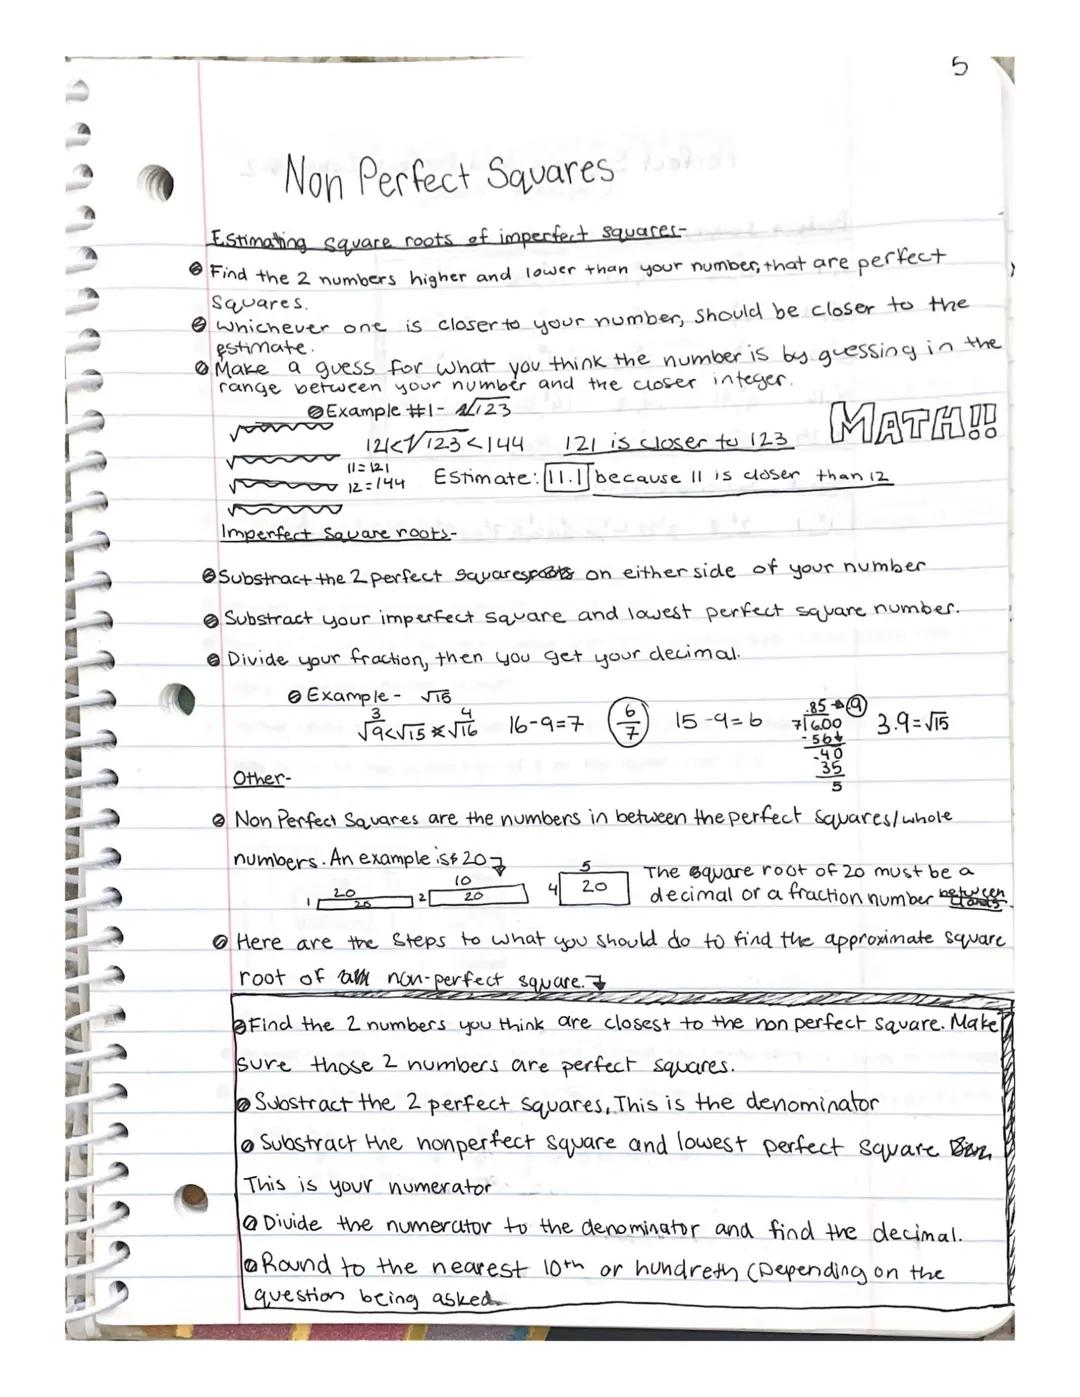 5
Non Perfect Squares
Estimating square roots of imperfect squares-
Find the 2 numbers higher and lower than your number, that are perfect
squares.
Whichever one is closer to your number, should be closer to the
estimate.
Make a guess for what you think the number is by guessing in the
range between your number and the closer integer.
Example #1- √123
MATH!!
121<√123<144 121 is closer to 123
11=121
12=144
Estimate: 11.1 because 11 is closer than 12
Imperfect Square roots-
Substract the 2 perfect squares on either side of your number
Substract your imperfect square and lowest perfect square number.
Divide your fraction, then you get your decimal.
Example- √15
3 4
√9<√15<√16 16-9=7 6/7 15-9=6
.85→.9
7√6.00
-56↓
-40
35
5
3.9=√15
Other-
Non Perfect Squares are the numbers in between the perfect squares/whole
numbers. An example is 20
20 10 5
1 20 2 20 4 20
The square root of 20 must be a
decimal or a fraction number
Here are the steps to what you should do to find the approximate square
root of non-perfect square.
Find the 2 numbers you think are closest to the non perfect square. Make
sure those 2 numbers are perfect squares.
Substract the 2 perfect squares, This is the denominator
Substract the nonperfect square and lowest perfect square
This is your numerator
Divide the numerator to the denominator and find the decimal.
Round to the nearest 10th or hundreth (Depending on the
question being asked.